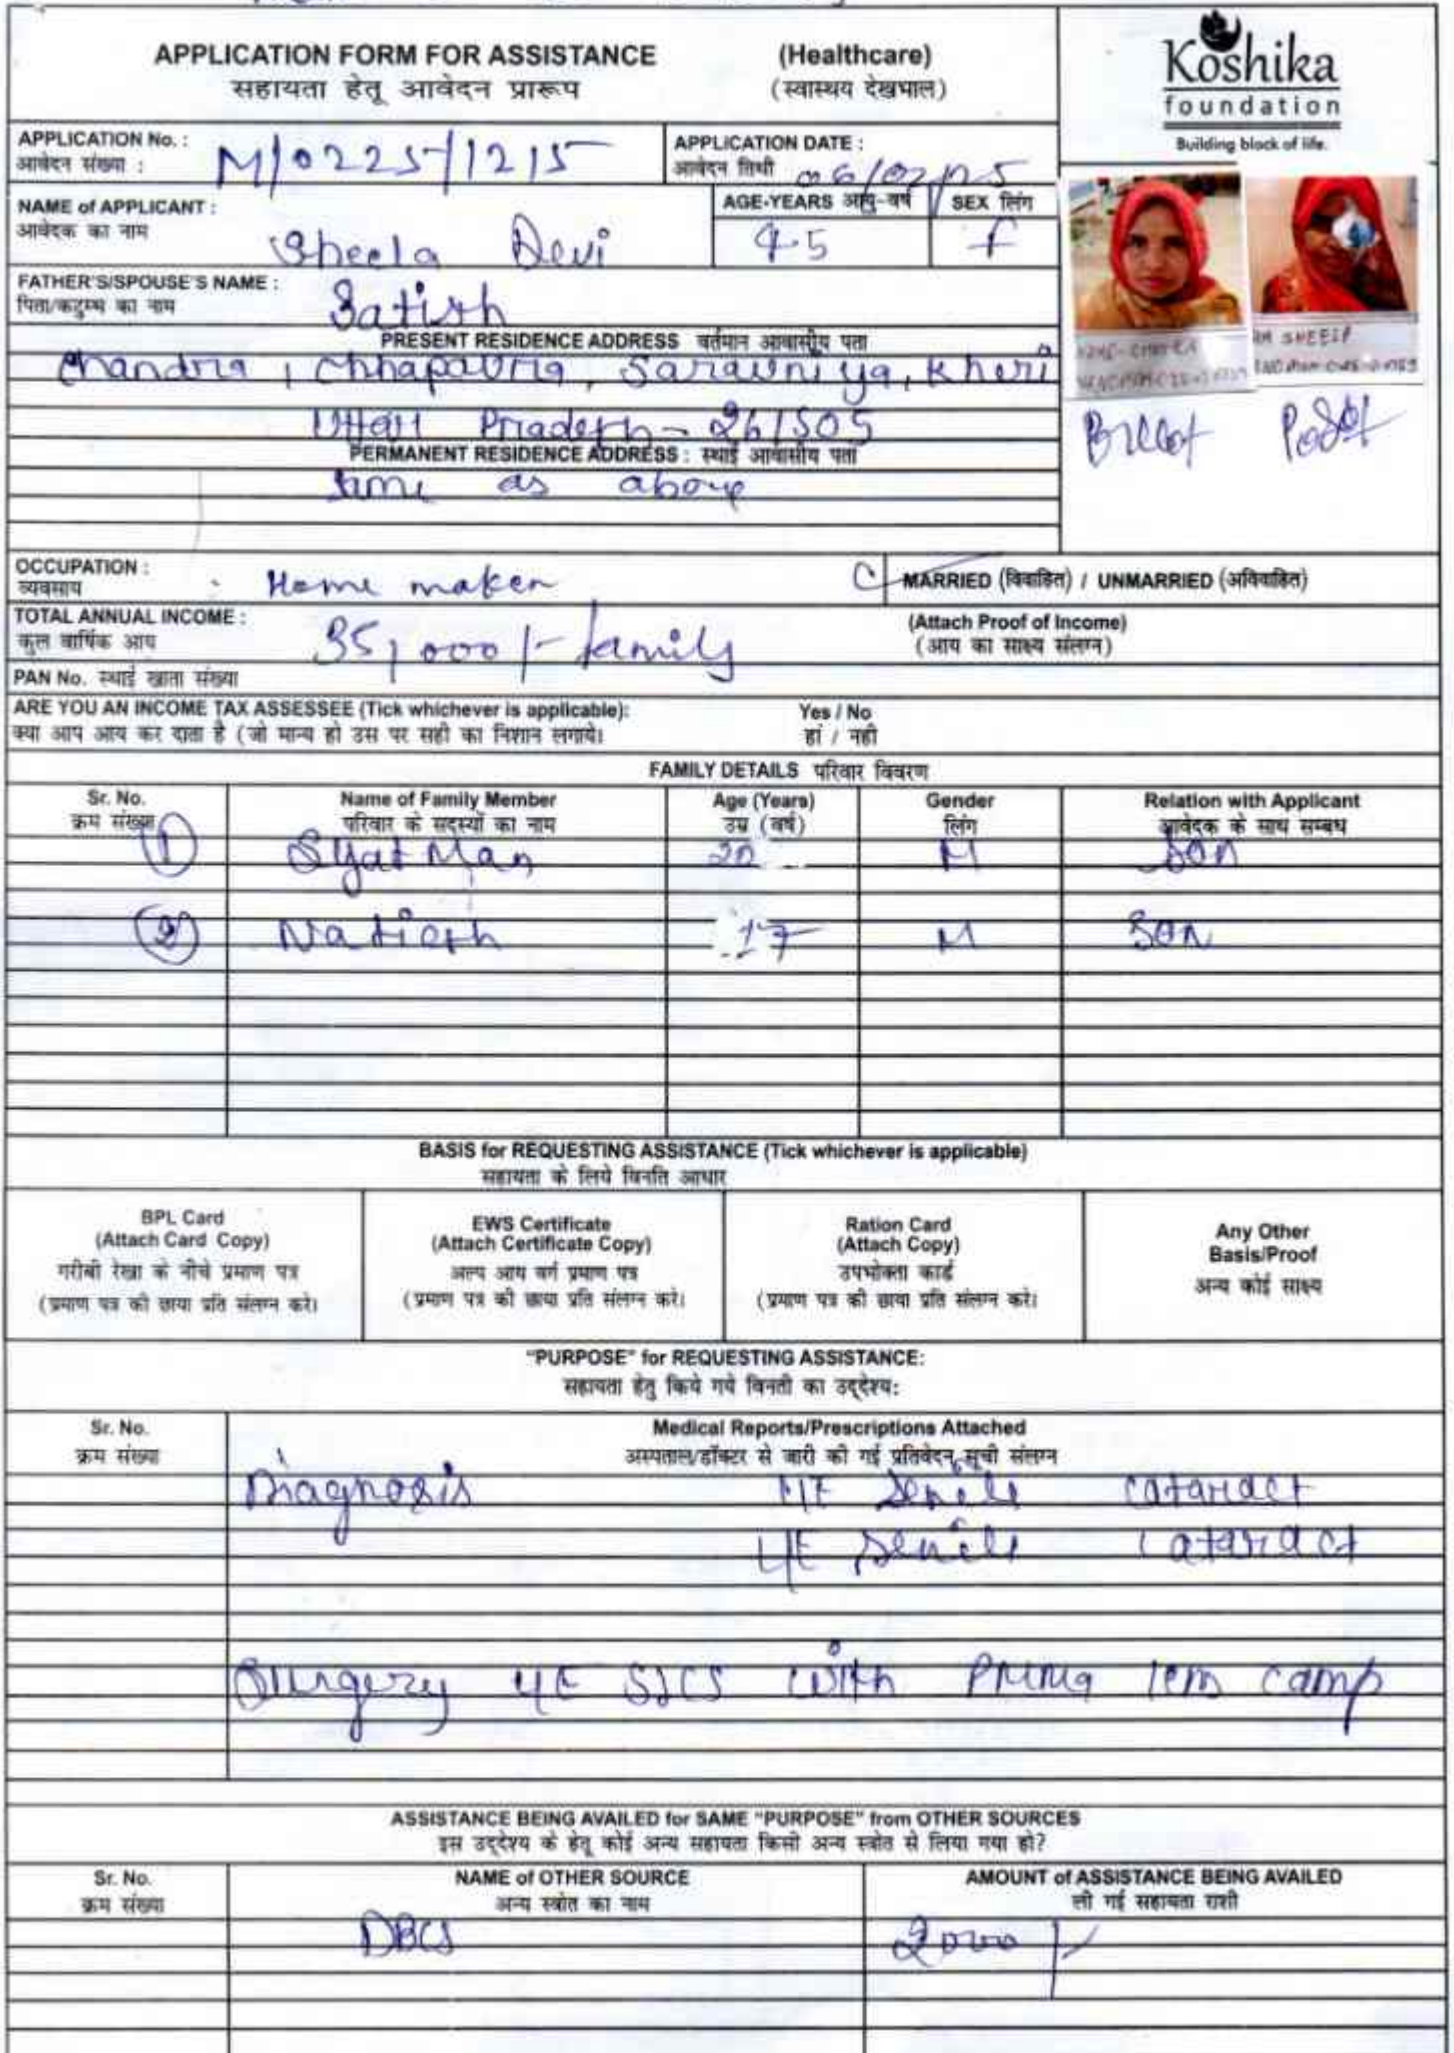 APPLICATION FORM FOR ASSISTANCE (Healthcare)
सहायता हेतू आवेदन प्रारूप (स्वास्थय देखभाल)
Koshika
foundation
Building block of life.
APPLICATION No. : M/0225/1215
आवेदन संख्या :
APPLICATION DATE :
आवेदन तिथी 06/02/25
NAME of APPLICANT :
आवेदक का नाम Sheela Devi
AGE-YEARS आयु-वर्ष 45
SEX लिंग f
FATHER'S/SPOUSE'S NAME :
पिता/कटुम्ब का नाम Satish
PRESENT RESIDENCE ADDRESS वर्तमान आवासीय पता
Chandra, Chhapauria, Sarauniya, Kheri
Uttar Pradesh - 261505
PERMANENT RESIDENCE ADDRESS : स्थाई आवासीय पता
Same as above
OCCUPATION :
व्यवसाय : Home maker
MARRIED (विवाहित) / UNMARRIED (अविवाहित)
TOTAL ANNUAL INCOME :
कुल वार्षिक आय 35,000/- family
(Attach Proof of Income)
(आय का साक्ष्य संलग्न)
PAN No. स्थाई खाता संख्या
ARE YOU AN INCOME TAX ASSESSEE (Tick whichever is applicable): Yes / No
क्या आप आय कर दाता है (जो मान्य हो उस पर सही का निशान लगाये। हां / नही
FAMILY DETAILS परिवार विवरण
Sr. No. Name of Family Member Age (Years) Gender Relation with Applicant
क्रम संख्या परिवार के सदस्यों का नाम उम्र (वर्ष) लिंग आवेदक के साथ सम्बध
1 20 M Son
2 17 M Son
BASIS for REQUESTING ASSISTANCE (Tick whichever is applicable)
सहायता के लिये विनति आधार
BPL Card
(Attach Card Copy)
गरीबी रेखा के नीचे प्रमाण पत्र
(प्रमाण पत्र की छाया प्रति संलग्न करे।
EWS Certificate
(Attach Certificate Copy)
अल्प आय वर्ग प्रमाण पत्र
(प्रमाण पत्र की छाया प्रति संलग्न करे।
Ration Card
(Attach Copy)
उपभोक्ता कार्ड
(प्रमाण पत्र की छाया प्रति संलग्न करे।
Any Other
Basis/Proof
अन्य कोई साक्ष्य
"PURPOSE" for REQUESTING ASSISTANCE:
सहायता हेतु किये गये विनती का उद्देश्य:
Sr. No. Medical Reports/Prescriptions Attached
क्रम संख्या अस्पताल/डॉक्टर से जारी की गई प्रतिवेदन सूची संलग्न
Diagnosis RE Senile cataract
LE Senile cataract
Surgery LE SICS with Prima lens camp
ASSISTANCE BEING AVAILED for SAME "PURPOSE" from OTHER SOURCES
इस उद्देश्य के हेतू कोई अन्य सहायता किसी अन्य स्त्रोत से लिया गया हो?
Sr. No. NAME of OTHER SOURCE AMOUNT of ASSISTANCE BEING AVAILED
क्रम संख्या अन्य स्त्रोत का नाम ली गई सहायता राशी
DBCS 2000/-